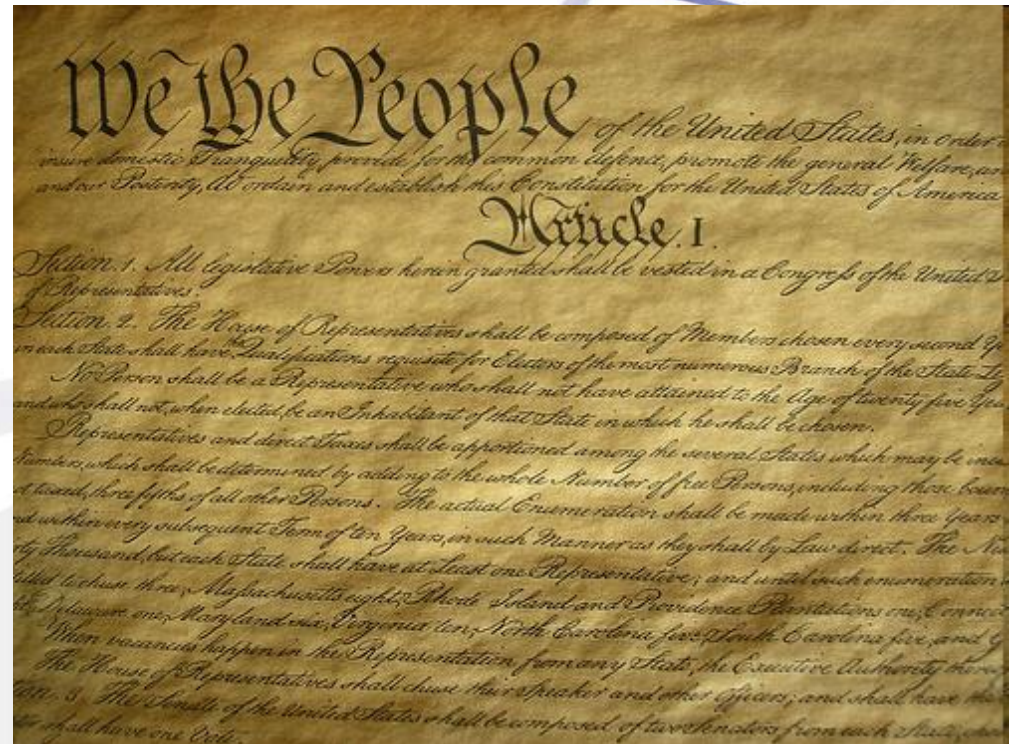 We the People of the United States, in Order
insure domestic Tranquility, provide for the common defence, promote the general Welfare, an
and our Posterity, do ordain and establish this Constitution for the United States of America
Article. I.
Section. 1. All legislative Powers herein granted shall be vested in a Congress of the United S
of Representatives.
Section. 2. The House of Representatives shall be composed of Members chosen every second Ye
in each State shall have the Qualifications requisite for Electors of the most numerous Branch of the State Le
No Person shall be a Representative who shall not have attained to the Age of twenty five Yea
and who shall not, when elected, be an Inhabitant of that State in which he shall be chosen.
Representatives and direct Taxes shall be apportioned among the several States which may be incl
Numbers, which shall be determined by adding to the whole Number of free Persons, including those boun
ot taxed, three fifths of all other Persons. The actual Enumeration shall be made within three Years
nd within every subsequent Term of ten Years, in such Manner as they shall by Law direct. The Nu
ty Thousand, but each State shall have at Least one Representative; and until such enumeration
titled to chuse three, Massachusetts eight, Rhode Island and Providence Plantations one, Connect
ht, Delaware one, Maryland six, Virginia ten, North Carolina five, South Carolina five, and G
When vacancies happen in the Representation from any State, the Executive Authority there
The House of Representatives shall chuse their Speaker and other Officers; and shall have the
tion. 3. The Senate of the United States shall be composed of two Senators from each State, chos
shall have one Vote.